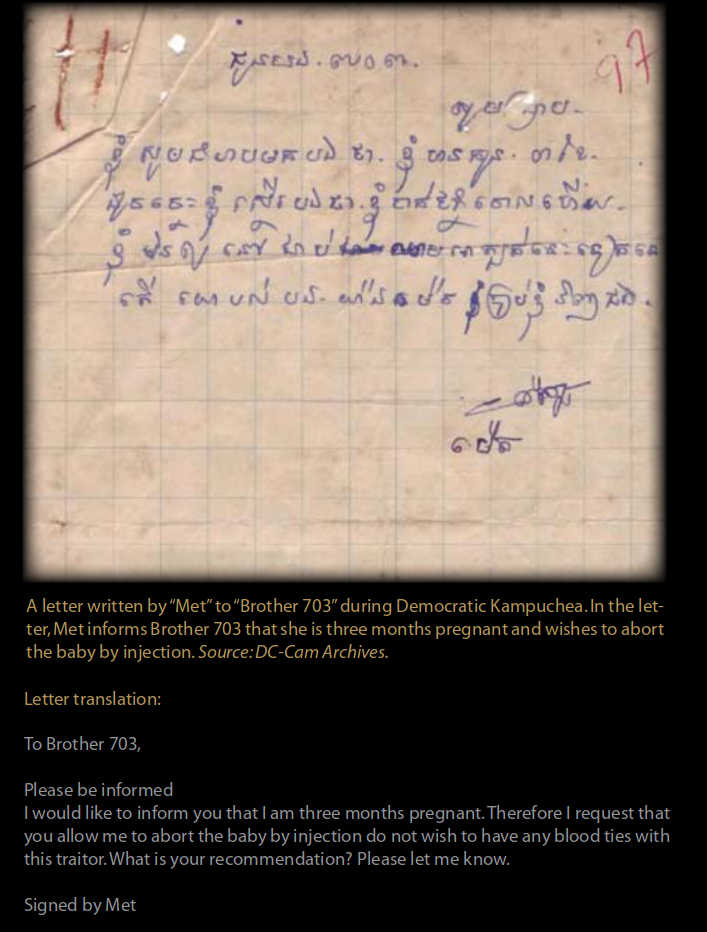 97
ជូនបង. ៧០៣.
សូមជ្រាប.
ខ្ញុំ សូមជំរាបមក បង ថា. ខ្ញុំ មានកូន. ៣ ខែ.
ដូចនេះ ខ្ញុំ ស្នើ បង ថា. ខ្ញុំ ចាក់ថ្នាំ ចោលហើយ.
ខ្ញុំ មិនឲ្យ នៅ ជាប់ ឈាមអាក្បត់នេះទៀតទេ
តើ យោបល់ បង. យ៉ាងម៉េច ប្រាប់ខ្ញុំ វិញ ផង.
ម៉េត
A letter written by “Met” to “Brother 703” during Democratic Kampuchea. In the let-
ter, Met informs Brother 703 that she is three months pregnant and wishes to abort
the baby by injection. Source: DC-Cam Archives.
Letter translation:
To Brother 703,
Please be informed
I would like to inform you that I am three months pregnant. Therefore I request that
you allow me to abort the baby by injection do not wish to have any blood ties with
this traitor. What is your recommendation? Please let me know.
Signed by Met